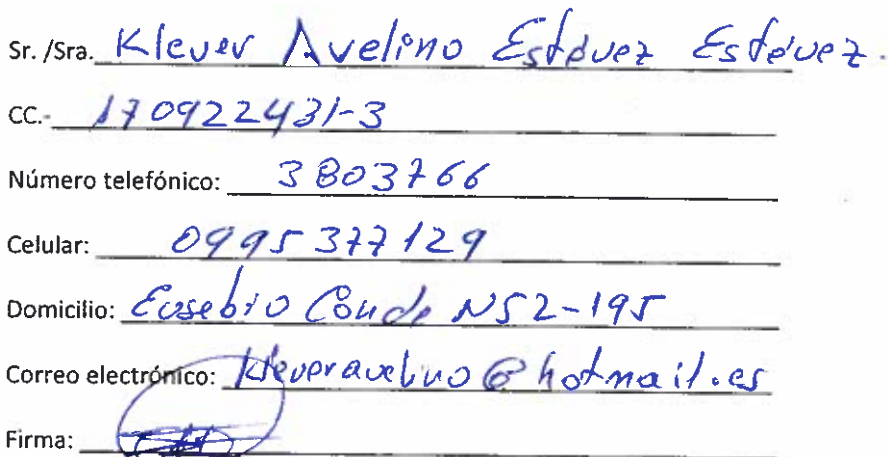 Sr. /Sra. Klever Avelino Estévez Estévez.
CC.- 170922431-3
Número telefónico: 3803766
Celular: 0995377129
Domicilio: Eusebio Conde N52-195
Correo electrónico: kleveravelino@hotmail.es
Firma: